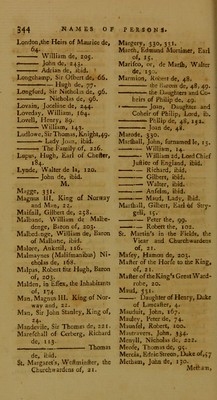 344 NAMES OF PERSONS.
London, the Heirs of Maurice de,
64.
—— William de, 205.
—— John de, 243.
—— Adrian de, ibid.
Longchamp, Sir Gilbert de, 66.
—— Hugh de, 77.
Longford, Sir Nicholas de, 96.
—— Nicholas de, 96.
Lovain, Jocaline de, 244.
Loveday, William, 164.
Lovell, Henry, 89.
—— William, 149.
Ludlowe, Sir Thomas, Knight, 49.
—— Lady Joan, ibid.
—— The Family of, 226.
Lupus, Hugh, Earl of Chester,
184.
Lynda, Walter de la, 120.
—— John de, ibid.
M.
Magge, 331.
Magnus III. King of Norway
and Man, 22.
Maisfail, Gilbert de, 258.
Malbanc, William de Malbe-
denge, Baron of, 203.
Malbedenge, William de, Baron
of Malbanc, ibid.
Malore, Anketil, 126.
Malmaynes (Malismanibus) Ni-
cholas de, 168.
Malpas, Robert fitz Hugh, Baron
of, 203.
Malden, in Essex, the Inhabitants
of, 174
Man, Magnus III. King of Nor-
way and, 22.
Man, Sir John Stanley, King of,
24.
Mandeville, Sir Thomas de, 221.
Mareschall of Cerberg, Richard
de, 113.
—— Thomas
de, ibid.
St. Margaret's, Westminster, the
Churchwardens of, 21.
Margery, 330, 331.
March, Edmund Mortimer, Earl
of, 25.
Marisco, or, de Marsh, Walter
de, 130.
Marmion, Robert de, 48.
—— the Baron de, 48, 49.
—— the Daughters and Co-
heirs of Philip de. 49.
—— Joan, Daughter and
Coheir of Philip, Lord, ib.
—— Philip de, 48, 152.
—— Joan de, 48.
Marode, 330.
Marshall, John, surnamed le, 13.
—— William, 14.
—— William 2d, Lord Chief
Justice of England, ibid.
—— Richard, ibid.
—— Gilbert, ibid.
—— Walter, ibid.
—— Anselm, ibid.
—— Maud, Lady, ibid.
Marshall, Gilbert, Earl of Stry-
gell, 15.
—— Peter the, 99.
—— Robert the, 102.
St. Martin's in the Fields, the
Vicar and Churchwardens
of, 21.
Masey, Hamon de, 203.
Master of the Horse to the King,
of, 21.
Master of the King's Great Ward-
robe, 20.
Maud, 331.
—— Daughter of Henry, Duke
of Lancaster, 4.
Mauduit, John, 167.
Mauley, Peter de, 74.
Maunsel, Roberts, 100.
Mautravers, John, 334.
Menyll, Nicholas de, 222.
Meole, Thomas de, 95.
Mercia, Edric Streon, Duke of, 57
Metham, John de, 130.
Metham,